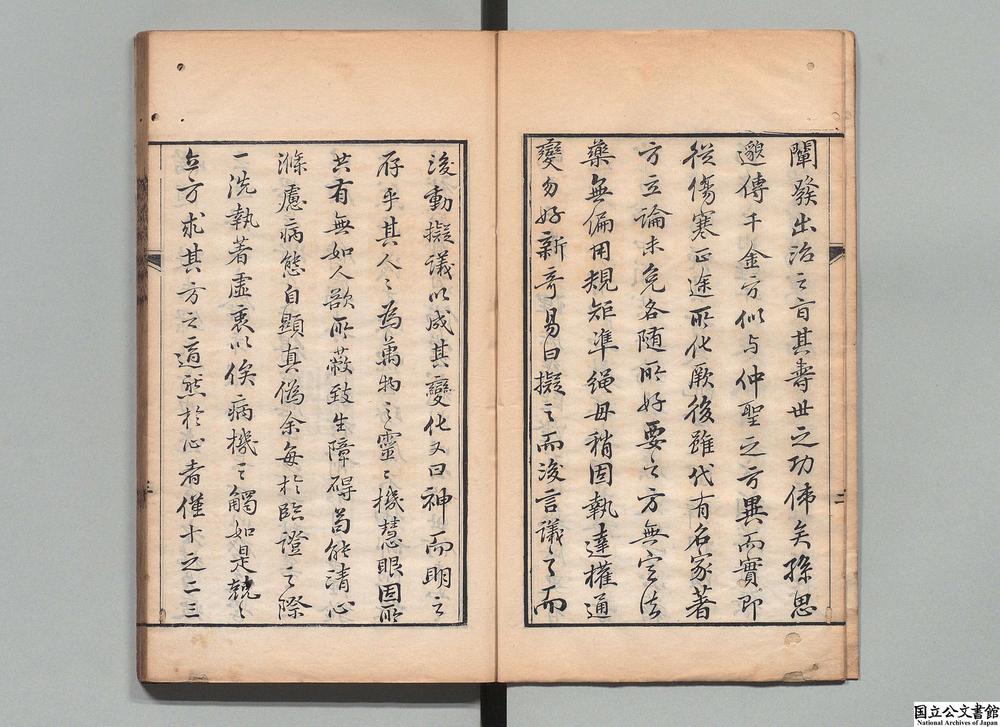 闡發出治之旨其壽世之功偉矣孫思
邈傳千金方似与仲聖之方異而實即
從傷寒正途所化厥後雖代有名家著
方立論未免各隨所好要之方無定法
藥無偏用規矩準繩毋稍固執達權通
變勿好新奇易曰擬之而後言議之而
後動擬議以成其變化又曰神而明之
存乎其人人為萬物之靈靈機慧眼固所
共有無如人欲所蔽致生障碍苟能清心
滌慮病態自顯真偽余每於臨證之際
一洗執著虛衷以俟病機之觸如是兢兢
立方求其方之適然於心者僅十之二三
二
三
国立公文書館
National Archives of Japan